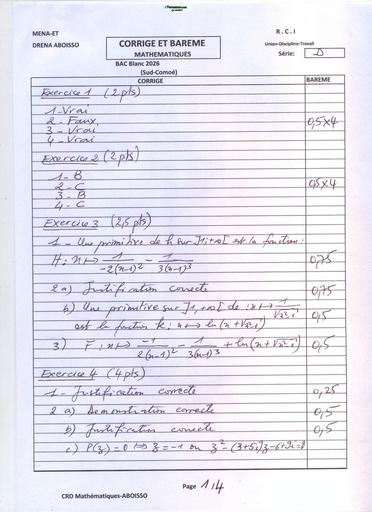 MENA-ET
R.C.I
DRENA ABOISSO
CORRIGE ET BAREME
Union-Discipline-Travail
MATHEMATIQUES
Série: D
BAC Blanc 2026
(Sud-Comoé)
CORRIGE BAREME
Exercice 1 (2 pts)
1 - Vrai
2 - Faux, 0,5×4
3 - Vrai
4 - Vrai
Exercice 2 (2 pts)
1 - B
2 - C 0,5×4
3 - B
4 - C
Exercice 3 (2,5 pts)
1 - Une primitive de h sur ]1;+∞[ est la fonction:
H: x ↦ 1/(-2(x-1)²) - 1/(3(x-1)³) 0,75
2 a) Justification correcte 0,75
b) Une primitive sur ]1,+∞[ de : x ↦ 1/√(x²-1)
est la fonction k: x ↦ ln(x+√(x²-1)) 0,5
3) F: x ↦ -1/(2(x-1)²) - 1/(3(x-1)³) + ln(x+√(x²-1)) 0,5
Exercice 4 (4 pts)
1 - Justification correcte 0,25
2 a) Demonstration correcte 0,5
b) Justification correcte 0,5
c) P(z) = 0 ⟺ z = -1 ou z² - (3+5i)z - 6 + 9i = 0
Page 1/4
CRD Mathématiques-ABOISSO